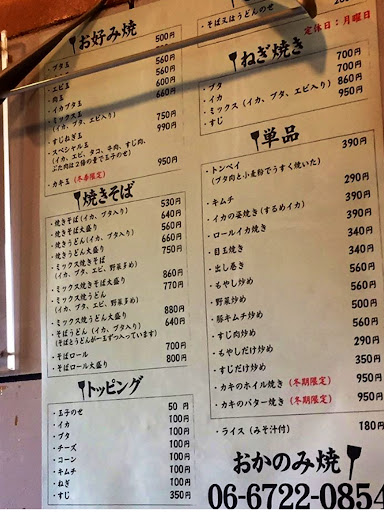 お好み焼
・ブタ玉 500円
560円
・エビ玉 560円
・肉玉 600円
・イカブタ玉 660円
・ミックス玉
(イカ、ブタ、エビ入り) 750円
・すじねぎ玉 990円
・スペシャル玉
(イカ、エビ、タコ、牛肉、すじ肉、
ぶた肉は2倍の量で玉子のせ) 950円
・カキ玉(冬季限定)
焼きそば
・焼きそば(イカ、ブタ入り) 530円
・焼きそば大盛り 640円
・焼きうどん(イカ、ブタ入り) 560円
・焼きうどん大盛り 660円
・ミックス焼きそば 750円
(イカ、ブタ、エビ、野菜多め)
・ミックス焼きそば大盛り 860円
・ミックス焼うどん 770円
(イカ、ブタ、エビ、野菜多め)
・ミックス焼うどん大盛り 880円
・そばうどん(イカ、ブタ入り) 640円
(そばとうどんが一玉ずつ入っています)
・そばロール 700円
・そばロール大盛り 800円
トッピング
・玉子のせ 50円
・イカ 100円
・ブタ 100円
・チーズ 100円
・コーン 100円
・キムチ 100円
・ねぎ 100円
・すじ 350円
・そば又はうどんのせ
定休日:月曜日
ねぎ焼き
・ブタ 700円
・イカ 700円
・ミックス(イカ、ブタ、エビ入り) 860円
・すじ 950円
単品
・トンペイ 390円
(ブタ肉と小麦粉でうすく焼いた)
・キムチ 290円
・イカの姿焼き(するめイカ) 390円
・ロールイカ焼き 340円
・目玉焼き 340円
・出し巻き 560円
・もやし炒め 560円
・野菜炒め 500円
・豚キムチ炒め 560円
・すじ肉炒め 560円
・もやしだけ炒め 290円
・すじだけ炒め 350円
・カキのホイル焼き(冬期限定) 950円
・カキのバター焼き(冬期限定) 950円
・ライス(みそ汁付) 180円
おかのみ焼
06-6722-0854